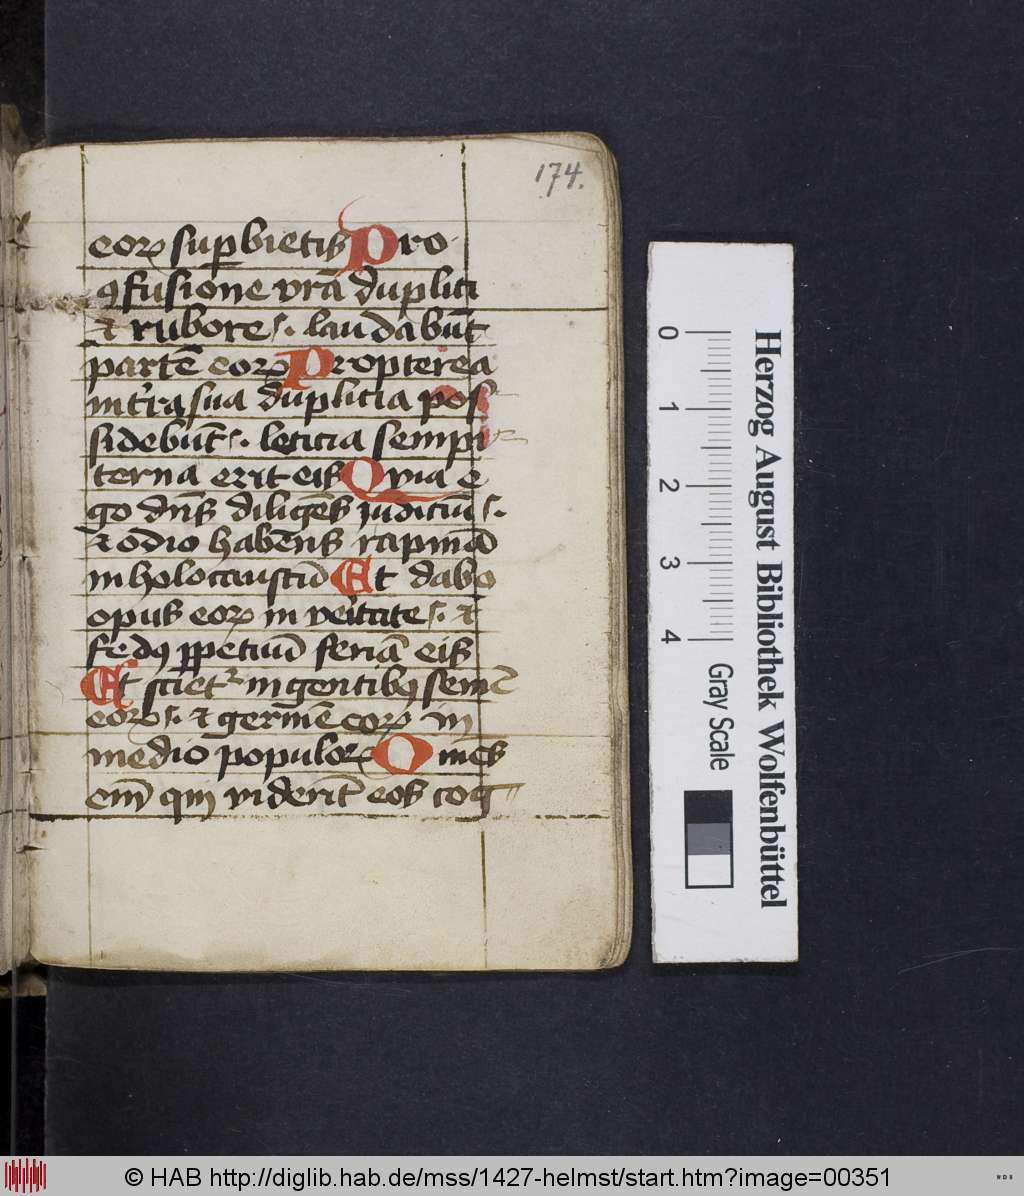 174.
eoꝝ suꝑbietis Pro
ꝯfusione vr̄a duplici
⁊ rubore s. laudabūt
partē eoꝝ Propterea
in t̓ra sua duplicia pos
sidebūt s. leticia sempi
terna erit eis Qvia e
go dn̄s diligēs iudiciū s.
⁊ odio habēns rapinā
in holocaustū Et dabo
opus eoꝝ in v̓itate s. ⁊
fedꝰ ꝑpetuū feriā eis
Et sciet᷑ in gentibꝰ semē
eoꝝ s. ⁊ germē eoꝝ in
medio populoꝝ O mēs
em̄ qui viderīt eos cog
0 1 2 3 4
Gray Scale
Herzog August Bibliothek Wolfenbüttel
© HAB http://diglib.hab.de/mss/1427-helmst/start.htm?image=00351